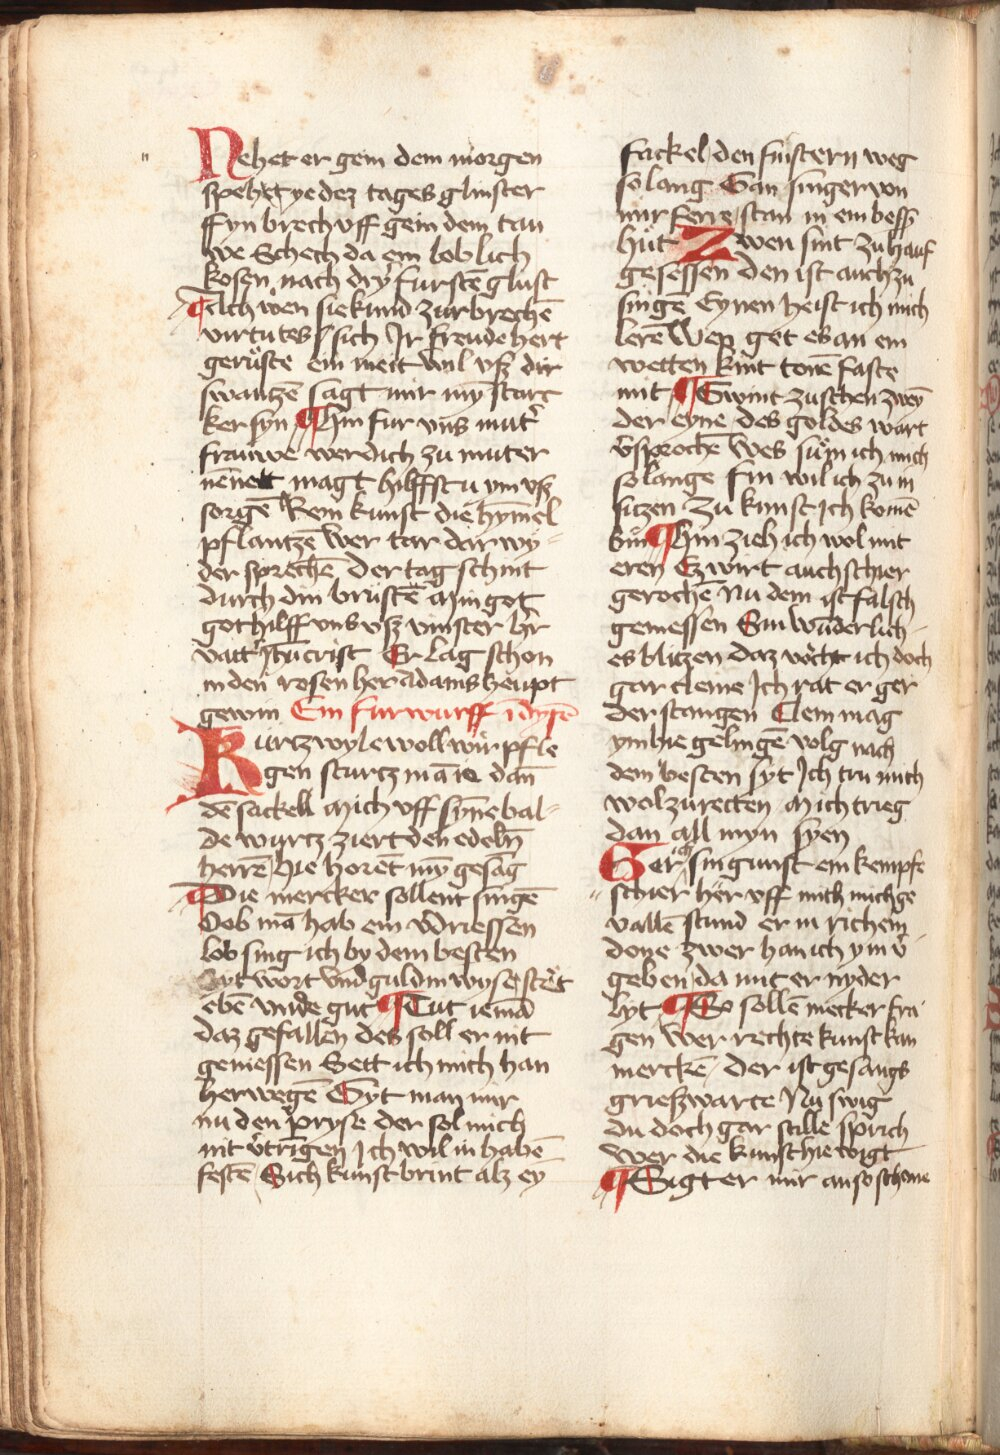 Nehet er gein dem morgen
spehet ye dez tages glinster
ffyn brech vff gein dem tau
we Schech da ein loblich
kosen nach dry furstē glust
¶ Mich wen sie kund zurbrechē
virtutes sich Jr freude hert
geruste ein meit wil vß dir
swantzē sagt mir myn starc
ker syn ¶ Hin fur vns mut̄
frauwe werdich zu muter
nēnet magt hilffstu ym vß
sorgē Rein kunst die hȳmel
pflantzē wer tar dar wy
der sprechē Der tag schint
durch din brustē Min got
got hilff vns vß vinster hr
vatt̄ Jhūcrist Er lag schon
in den rosen her adams heupt
gewin Ein furwurff
Kurtzwyle woll wir pfle
gen sturtz mā ie dan
dē sackell Mich vff synē bal
de wurtz ziert den edeln̄
herrē Hie horēt my gesag
¶ Die mercker sollent singē
Dob mā hab ein v̄driessen
lob sing ich by dem besten
Syt wort vnd guldin wyse stet
ebē vnde gut ¶ Tut iemā
daz gefallen des soll er nit
geniessen Sett ich mich han
herwegē Syt man mir
nu den pryse der sol mich
nit v̄tringen Jch wil in habē
festē Sich kunst brint alz ey
fackel den finstern weg
so lang Gan singer von
mir ferre stan in ein bess
hut Zwen sint zu hauf
gesessen den ist auch zu
singē Eynen heist ich mich
lerē Wep get es an ein
wetten kint tonē faste
mit ¶ Gwint zuschen zwey
der eyne des goldes wart
v̄sprochē Wes sum ich mich
so lange Hin wil ich zu in
sitzen Zu kunst Jch komē
bin ¶ Hin zieh ich wol mit
eren Ez wirt auch schier
gerochē Nu dem ist falsch
gemessen Sin wunderlich
es blitzen daz vocht ich doch
gar cleine Jch rat er ger
der stangen Clein mag
ym hie gelingē volg nach
dem besten syt Jch tru mich
wol zu recten Mich trieg
dan all myn syen
Ger sin gunst ein kempfe
schier her vff mich mich ge
vallē stund er in richem
done zwer han ich ym v̄
geben da mit er nyder
lyt ¶ So sollē mecker fra
gen Wer rechte kunst kan
merckē Der ist gesangs
grießwarte Nu swig
du doch gar stille sprich
Wer die kunst hie wigt
¶ Sigt er mir an so schone